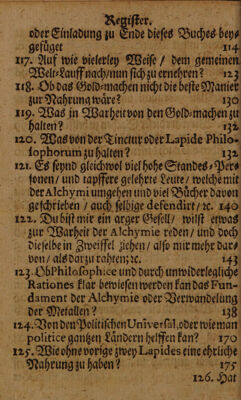 Register.
oder Einladung zu Ende dieses Buches bey-
gefüget 114
117. Auf wie vielerley Weise / dem gemeinen
Welt-Lauff nach/nun sich zu ernehren? 123
118. Ob das Gold-machen nicht die beste Manier
zur Nahrung wäre? 130
119. Was in Warheit von den Gold-machen zu
halten? 132
120. Was von der Tinctur oder Lapide Philo-
sophorum zu halten? 132
121. Es seynd gleichwol viel hohe Standes-Per-
sonen / und tapffere gelehrte Leute / welche mit
der Alchymi umgehen und viel Bücher davon
geschrieben / auch selbige defendirt / &c. 140
122. Du bist mir ein arger Gesell / wilst etwas
zur Warheit der Alchymie reden / und doch
dieselbe in Zweiffel ziehen / also mir mehr dar-
von / als darzu rahten; &c. 143
123. Ob Philosophice und durch unwiderlegliche
Rationes klar bewiesen werden kan das Fun-
dament der Alchymie oder Verwandelung
der Metallen? 138
124. Von den Politischen Universal, oder wie man
politice gantzen Ländern helffen kan? 170
125. Wie ohne vorige zwey Lapides eine ehrliche
Nahrung zu haben? 175
126. Hat